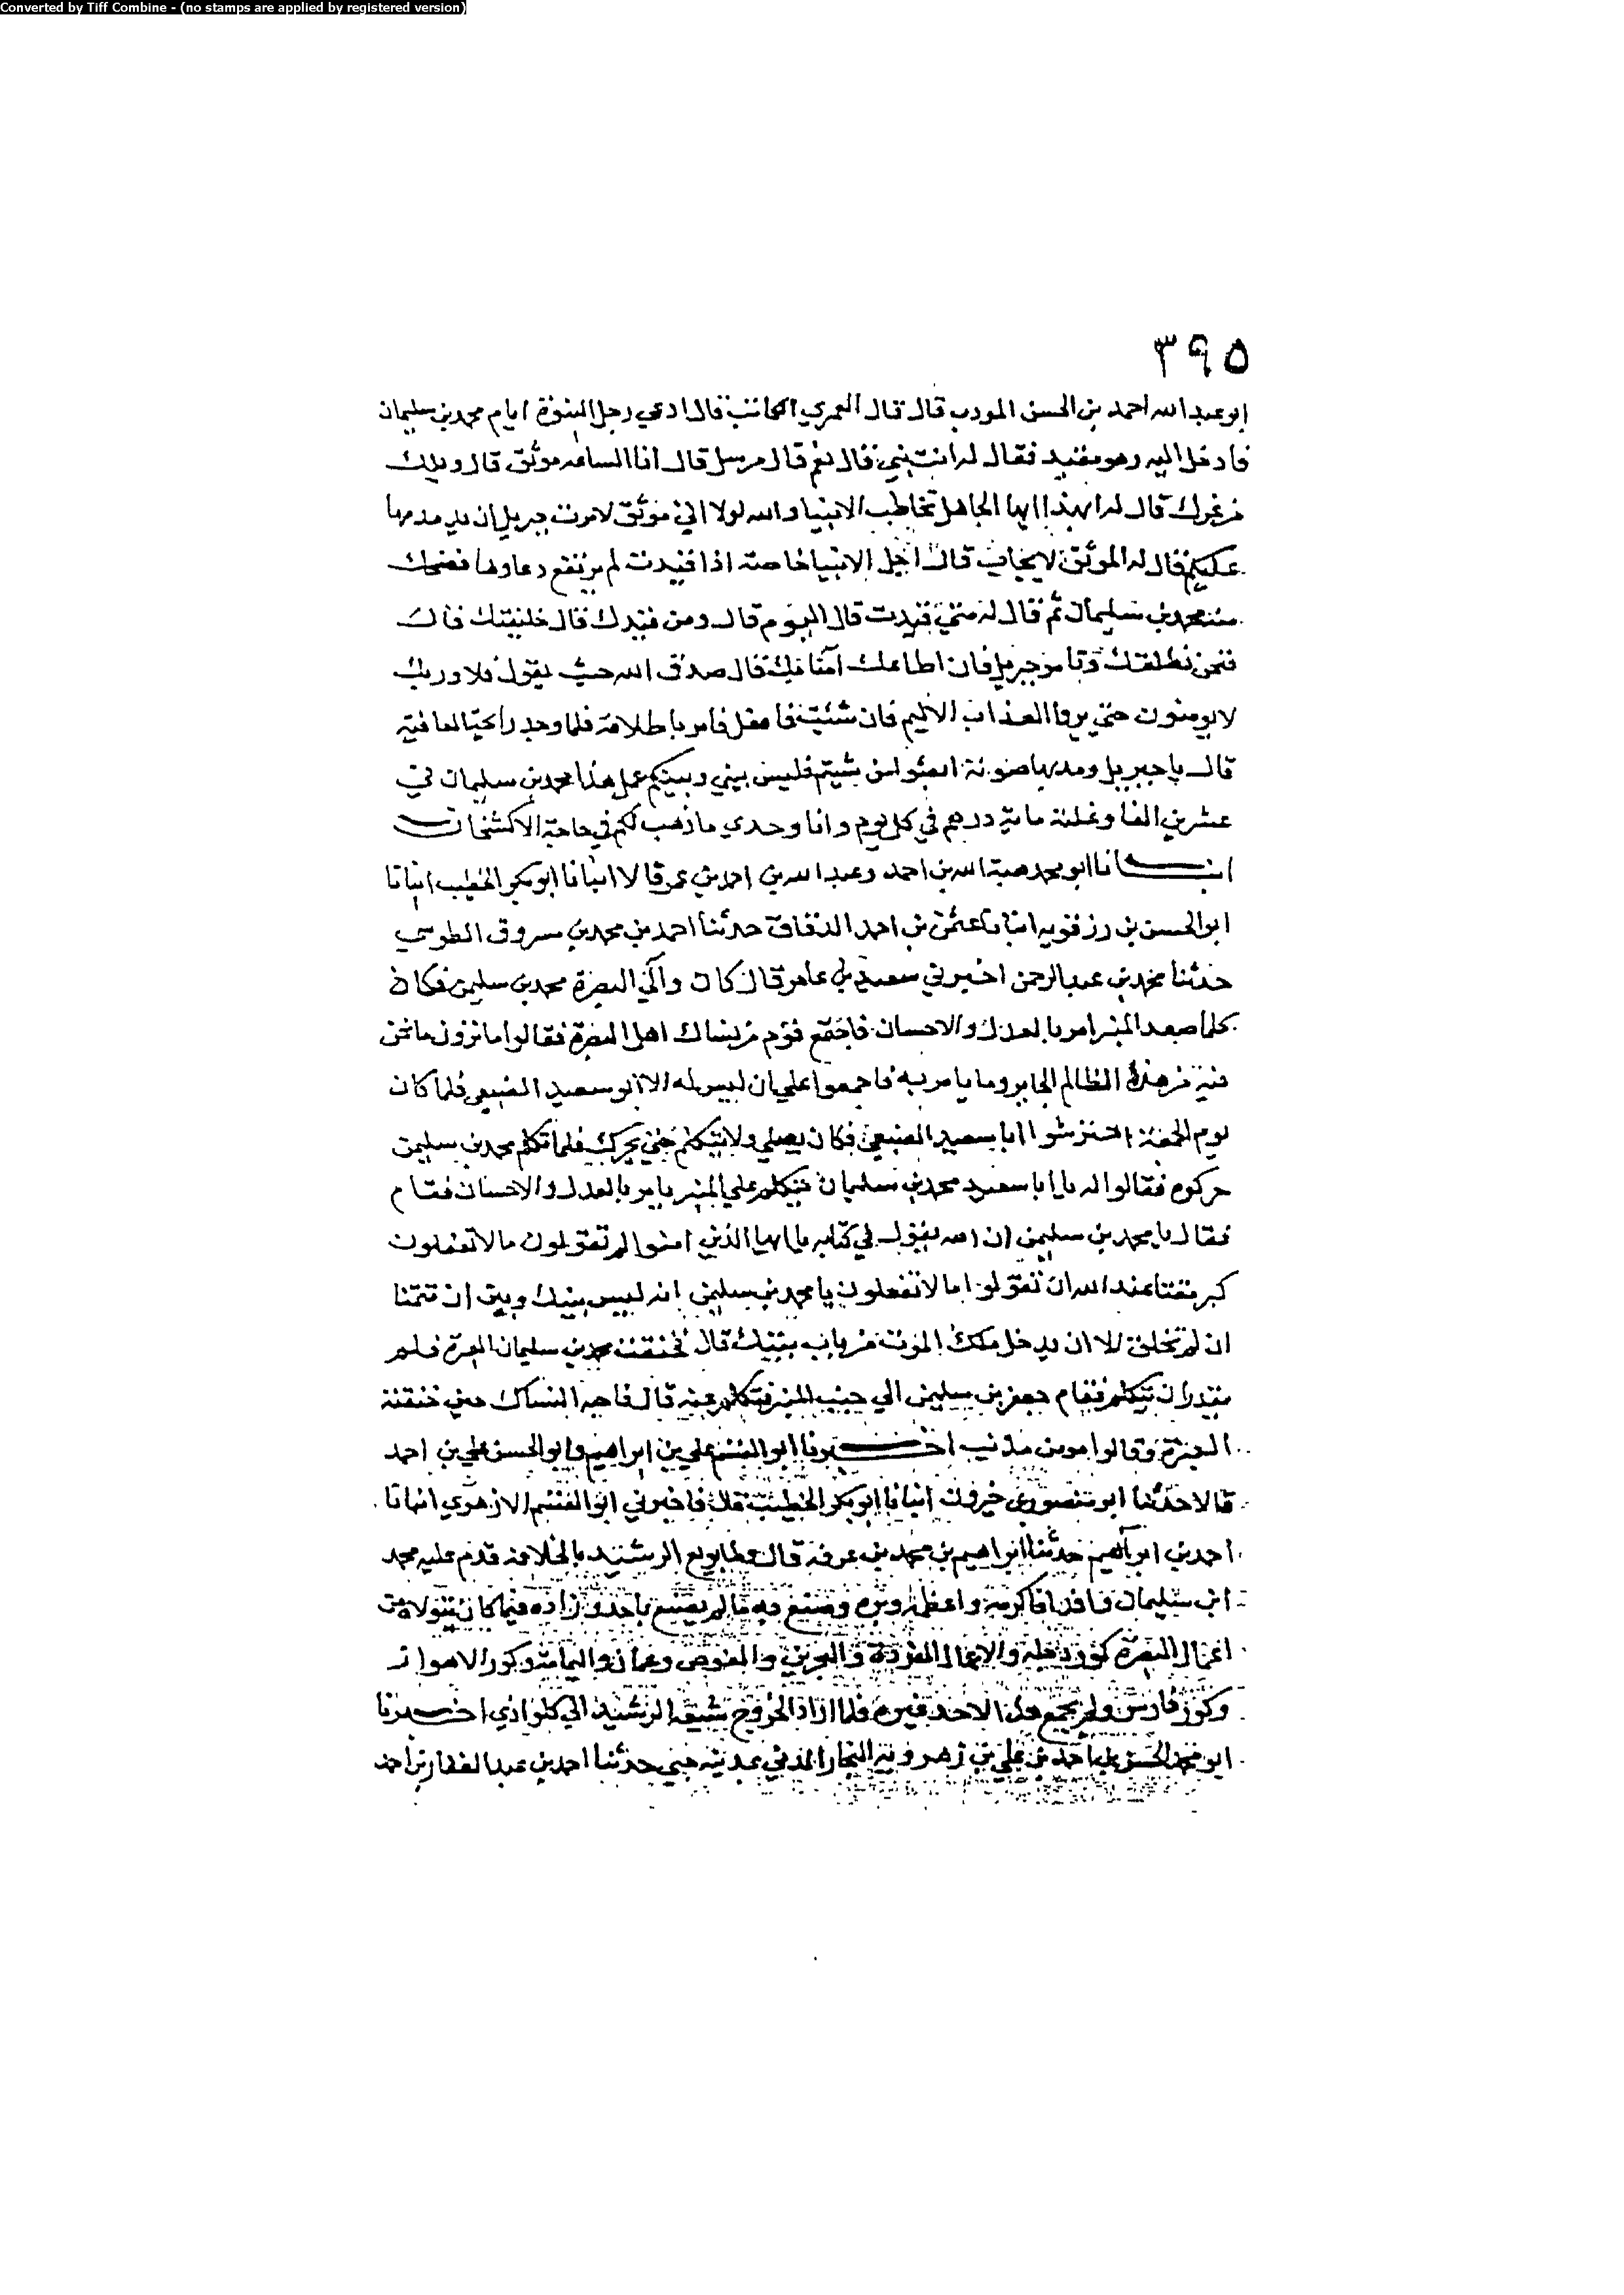 Converted by Tiff Combine - (no stamps are applied by registered version)
٣٩٥
ابو عبد الله احمد بن الحسن المودب قال قال العمري الكاتب قال ادعى رجل النبوة ايام محمد بن سليمان
فادخل اليه وهو مقيد فقال له انت نبي قال نعم قال مرسل قال انا الساعه موثق قال ويلك
من غرك قال له ابهذا ايها الجاهل تخاطب الانبيا والله لولا اني موثق لامرت جبريل ان يدمدمها
عليكم فقال له الموثق لا يجاب قال اجل الانبيا خاصة اذا قيدت لم يرتفع دعاوها فضحك
منه محمد بن سليمان ثم قال له متى قيدت قال اليوم قال ومن قيدك قال خليفتك قال
فنحن نطلقك وتامر جبريل فان اطاعك امنا بك قال صدق الله حيث يقول فلا وربك
لا يومنون حتى يروا العذاب الاليم فان شئت فافعل فامر باطلاقه فلما وجد راحة العافية
قال يا جبريل ومد بها صوته ابعثوا من شيتم فليس بيني وبينكم عمل هذا محمد بن سليمان في
عشرين الفا وغلته ماية درهم في كل يوم وانا وحدي ما ذهب لكم في حاجة الا كشخان
انبانا ابو محمد هبة الله بن احمد وعبد الله بن احمد بن عمر قالا انبانا ابو بكر الخطيب انبانا
ابو الحسن بن رزقويه انبانا عثمن بن احمد الدقاق حدثنا احمد بن محمد بن مسروق الطوسي
حدثنا محمد بن عبد الرحمن اخبرني سعيد بن عامر قال كان والي البصرة محمد بن سليمن فكان
كلما صعد المنبر امر بالعدل والاحسان فاجتمع قوم من نساك اهل البصرة فقالوا ما ترون ما نحن
فيه من هذا الظالم الجاير وما يامر به فاجمعوا على ان ليس له الا ابو سعيد الضبعي فلما كان
يوم الجمعة احتوشوا ابا سعيد الضبعي فكان يصلي ولا يتكلم حتى يحرك فلما تكلم محمد بن سليمن
حركوه فقالوا له يا ابا سعيد محمد بن سليمان يتكلم على المنبر يامر بالعدل والاحسان فقام
فقال يا محمد بن سليمن ان الله يقول في كتابه يا ايها الذين امنوا لم تقولون ما لا تفعلون
كبر مقتا عند الله ان تقولوا ما لا تفعلون يا محمد بن سليمن انه ليس بينك وبين ان تتمنا
ان لم تخلق الا ان يدخل ملك الموت من باب بيتك قال فخنقت محمد بن سليمان العبرة فلم
يقدر ان يتكلم فقام جعفر بن سليمن الى جنب المنبر فتكلم عنه قال فاحبه النساك حين خنقته
العبرة وقالوا مومن مذنب اخبرنا ابو القسم علي بن ابراهيم وابو الحسن علي بن احمد
قالا حدثنا ابو منصور بن خيرون انبانا ابو بكر الخطيب قال فاخبرني ابو القسم الازهري انبانا
احمد بن ابراهيم حدثنا ابراهيم بن محمد بن عرفة قال لما بويع الرشيد بالخلافة قدم عليه محمد
ابن سليمان وافدا فاكرمه واعظمه وبره وصنع به ما لم يصنع باحد وزاده فيما كان يتولاه من
اعمال البصرة كور دجلة والاعمال المفردة والبحرين والغوص وعمان واليمامة وكور الاهواز
وكور فارس ولم يجمع هذا لاحد غيره فلما اراد الخروج شيعه الرشيد الى كلواذي اخبرنا
ابو محمد الحسن بن احمد بن علي بن زهرويه النجار المدني بمدينة جي حدثنا احمد بن عبد الغفار بن احمد